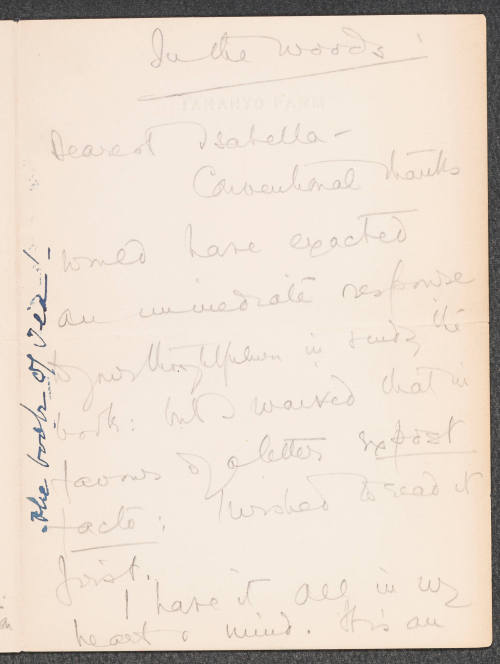 In the woods
TANAHYO FARM
Dearest Isabella –
Conventional thanks
would have exacted
an immediate response
to your thoughtfulness in sending the
book: but I waived that in
favour of a letter ex post
facto: I wished to read it
first.
I have it all in my
heart & mind. It is an
The book of Tea! –